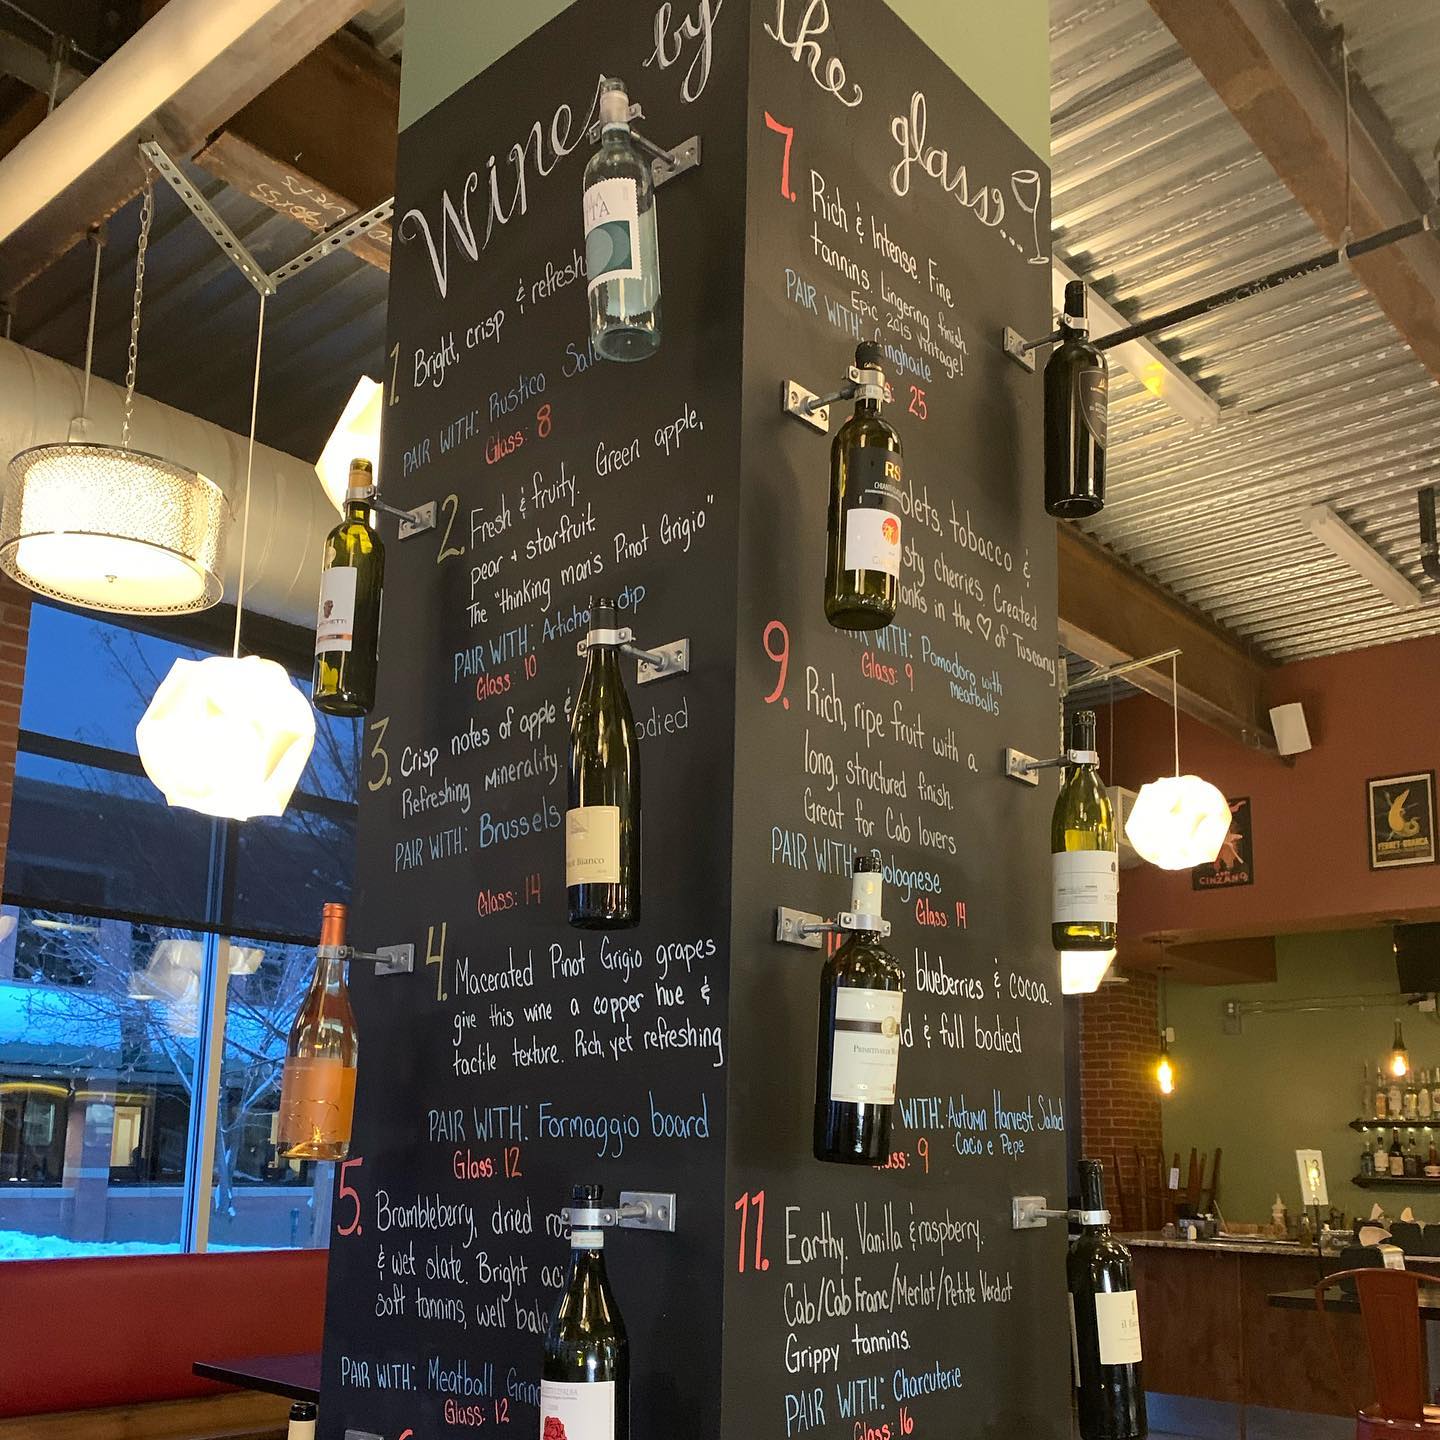 Wines by
the glass...
1.
Bright, crisp & refresh
PAIR WITH: Rustico
Glass: 8
2.
Fresh & fruity. Green apple,
pear + starfruit.
The "thinking man's Pinot Grigio"
PAIR WITH: dip
Glass: 10
3.
Crisp notes of apple &
Refreshing Minerality.
PAIR WITH: Brussels
Glass: 14
4.
Macerated Pinot Grigio grapes
give this wine a copper hue &
tactile texture. Rich, yet refreshing
PAIR WITH: Formaggio board
Glass: 12
5.
Brambleberry, dried
& wet slate. Bright
soft tannins, well
PAIR WITH: Meatball
Glass: 12
7.
Rich & Intense. Fine
tannins. Lingering finish.
EPIC 2015 vintage!
PAIR WITH:
25
tobacco &
cherries. Created
in the ♡ of Tuscany
WITH: Pomodoro with
meatballs
Glass: 9
9.
Rich, ripe fruit with a
long, structured finish.
Great for Cab lovers
PAIR WITH: Bolognese
Glass: 14
blueberries & cocoa.
& full bodied
WITH: Autumn Harvest Salad
Cacio e Pepe
9
11.
Earthy. Vanilla & raspberry.
Cab/Cab Franc/Merlot/Petite Verdot
Grippy tannins.
PAIR WITH: Charcuterie
Glass: 16
RS
Bianco
CINZANO
FERNET-BRANCA